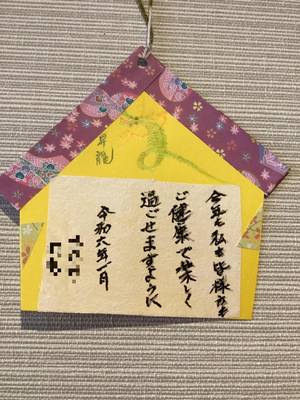 昇龍
今年も私も皆様方も
ご健康で楽しく
過ごせますように
令和六年一月